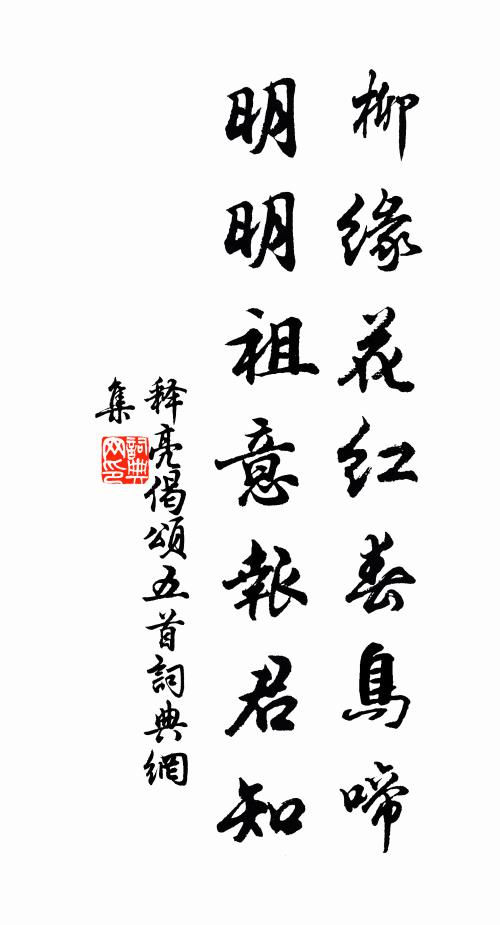 柳缘花红春鳥啼
明明祖意報君知
释亮偈頌五首詞典網
集
詞典
网印